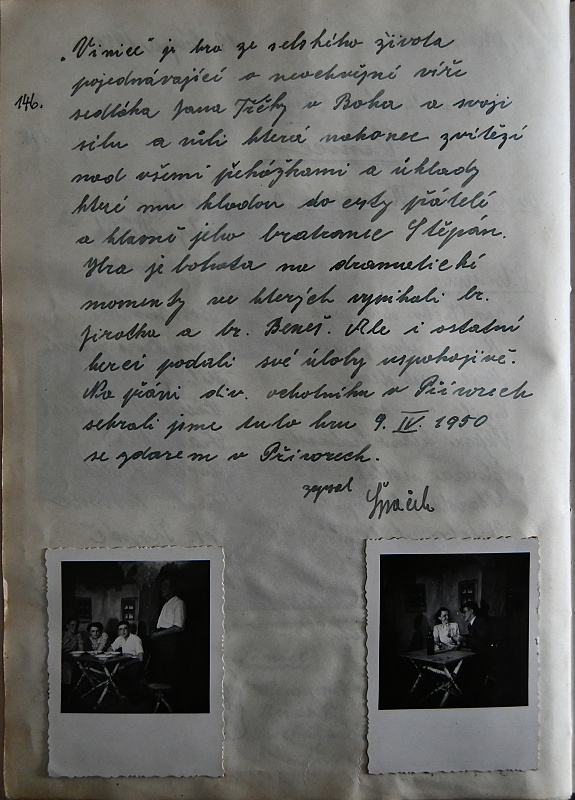 „Vinice" je hra ze selského života
146.
pojednávající o neochvějné víře
sedláka Jana Třěky v Boha a svoji
sílu a vůli která nakonec zvítězí
nad všemi překážkami a úklady
které mu kladou do cesty přátelé
a hlavně jeho bratranec Štěpán.
Hra je bohata na dramatické
momenty ve kterých vynikali br.
Jirotka a br. Beneš. Ale i ostatní
herci podali své úlohy uspokojivě.
Na přání div. ochotníků v Přívorech
sehráli jsme tuto hru 9. IV. 1950
se zdarem v Přívorech.
zapsal